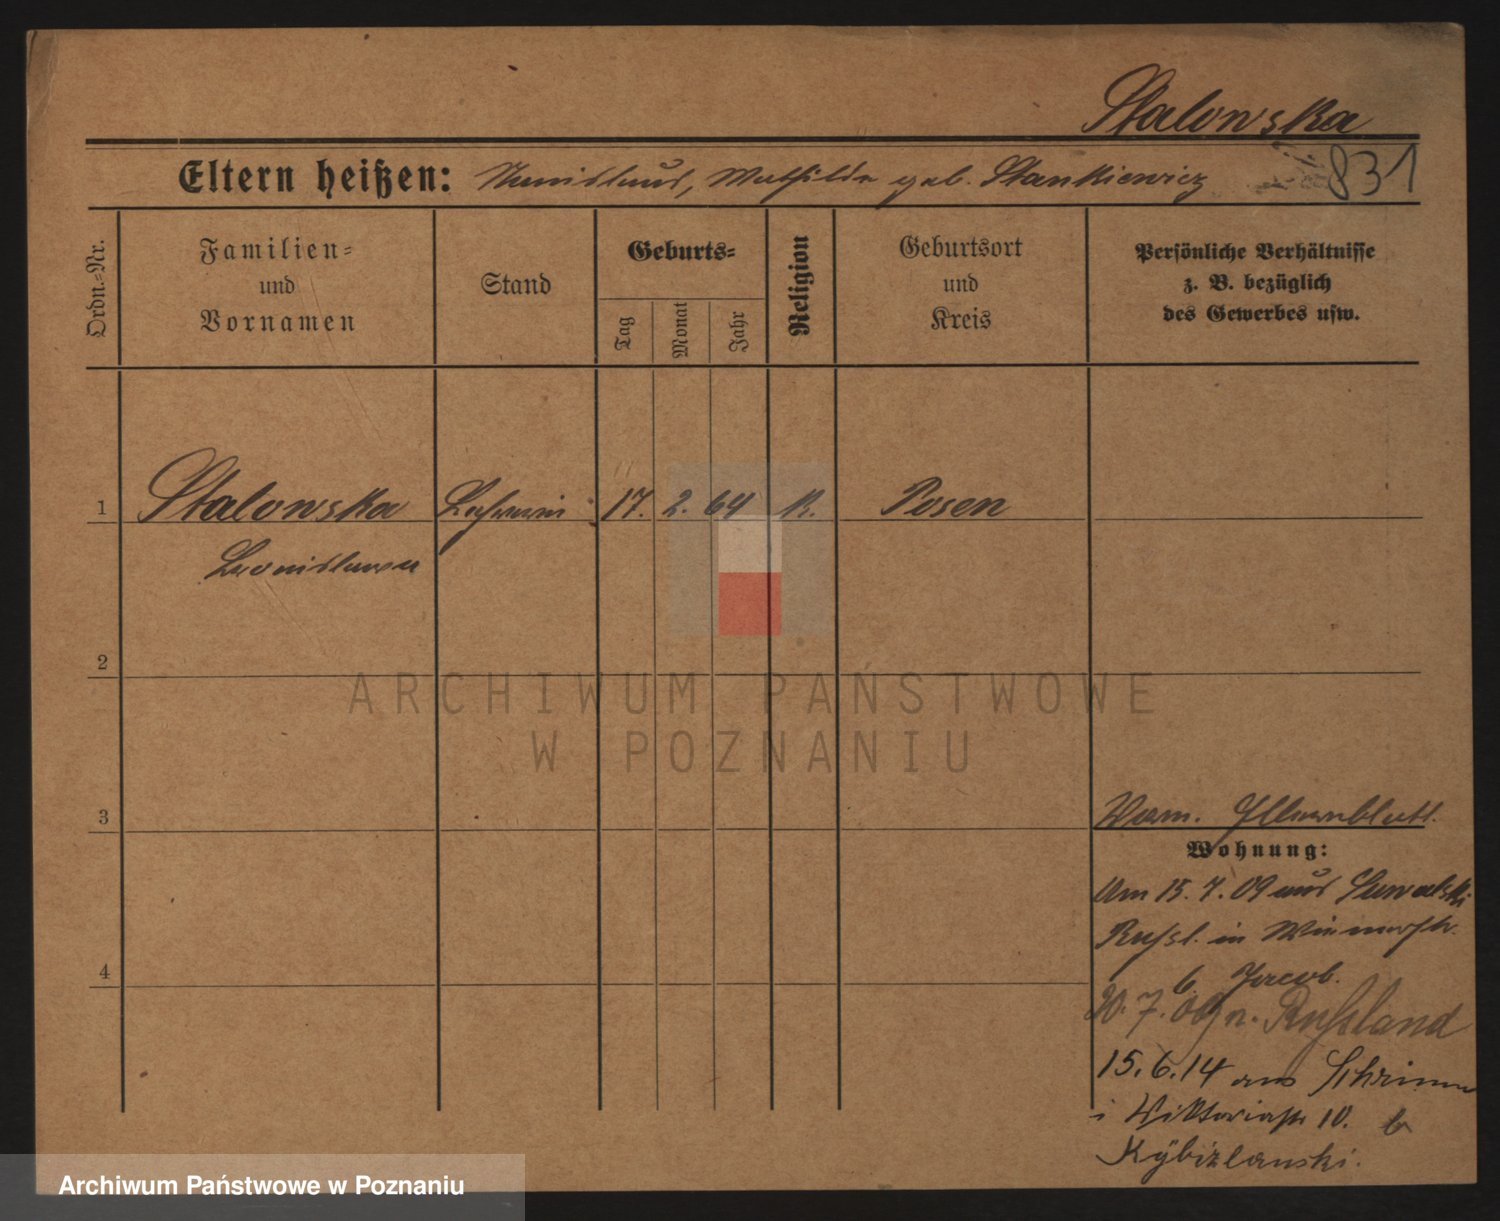 Stalowska
831
Eltern heißen: Stanislaus, Mathilde geb. Stankiewicz
Ordn.-Nr.
Familien-
und
Vornamen
Stand
Geburts-
Tag
Monat
Jahr
Religion
Geburtsort
und
Kreis
Persönliche Verhältnisse
z. B. bezüglich
des Gewerbes usw.
1 Stalowska Lehrerin 17. 2. 64 K. Posen
Bronislawa
2
3
4
Elternblatt.
Wohnung:
Am 15. 7. 09 aus Suwalski
Rußl. in
b. Jacob.
20. 7. 09 n. Rußland
15. 6. 14 aus Schrimm
i Viktoriastr 10. b
ARCHIWUM PAŃSTWOWE
W POZNANIU
Archiwum Państwowe w Poznaniu